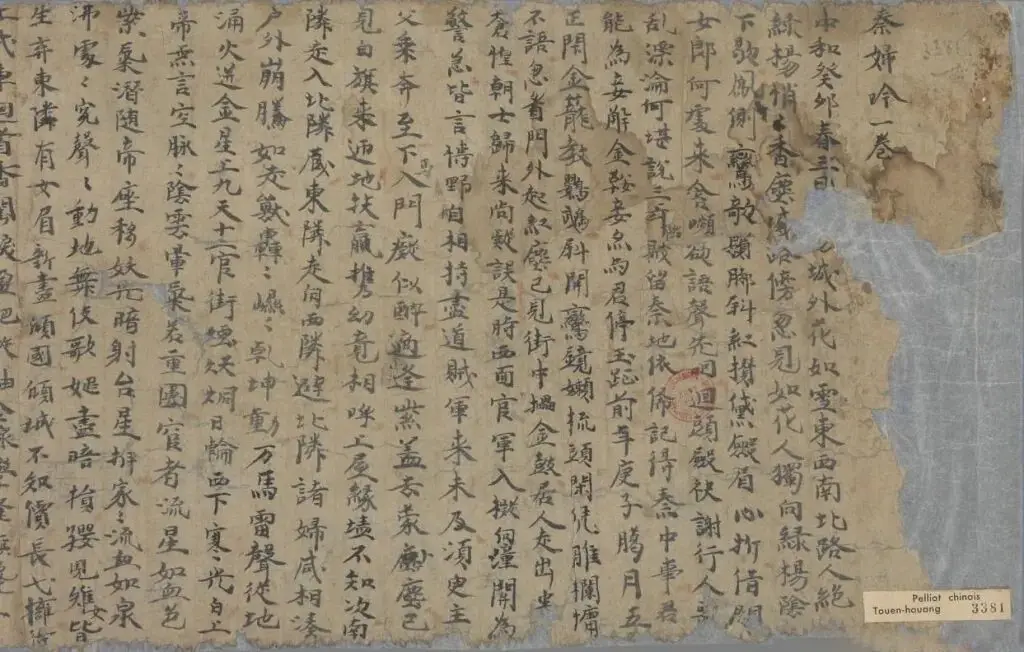 秦婦吟一卷
中和癸卯春三月城外花如雪東西南北路人絕
綠楊悄〻香塵滅路傍忽見如花人獨向綠楊陰
下歇鳳側鸞欹鬢腳斜紅攢黛斂眉心折借問
女郎何處來含嚬欲語聲先咽迴頭斂袂謝行人喪
亂漂淪何堪說三年陷賊留秦地依俙記得秦中事君
能為妾解金鞍妾亦為君停玉趾前年庚子臘月五
正閇金籠教鸚鵡斜開鸞鏡嬾梳頭閑凭雕欄慵
不語忽看門外起紅塵已見街中擂金鼓居人走出半
倉惶朝士歸來尚疑誤是時西面官軍入擬向潼關為
警急皆言博野自相持盡道賊軍來未及須臾主
父乘奔至下馬入門癡似醉適逢紫蓋去蒙塵已
見白旗來迊地扶羸攜幼竟相呼上屋緣墻不知次南
隣走入北隣藏東隣走向西隣避北隣諸婦咸相湊
户外崩騰如走獸轟〻〻乾坤動万馬雷聲從地
涌火迸金星上九天十二官街煙烘烔日輪西下寒光白上
帝無言空脉〻陰雲暈氣若重圍宦者流星如血色
紫氣潛隨帝座移妖光暗射台星拆家〻流血如泉
沸處〻冤聲〻動地舞伎歌姬盡暗捐嬰兒稚女皆
生弃東隣有女眉新畫傾國傾城不知價長戈擁得
上戎車迴首香閨淚盈把